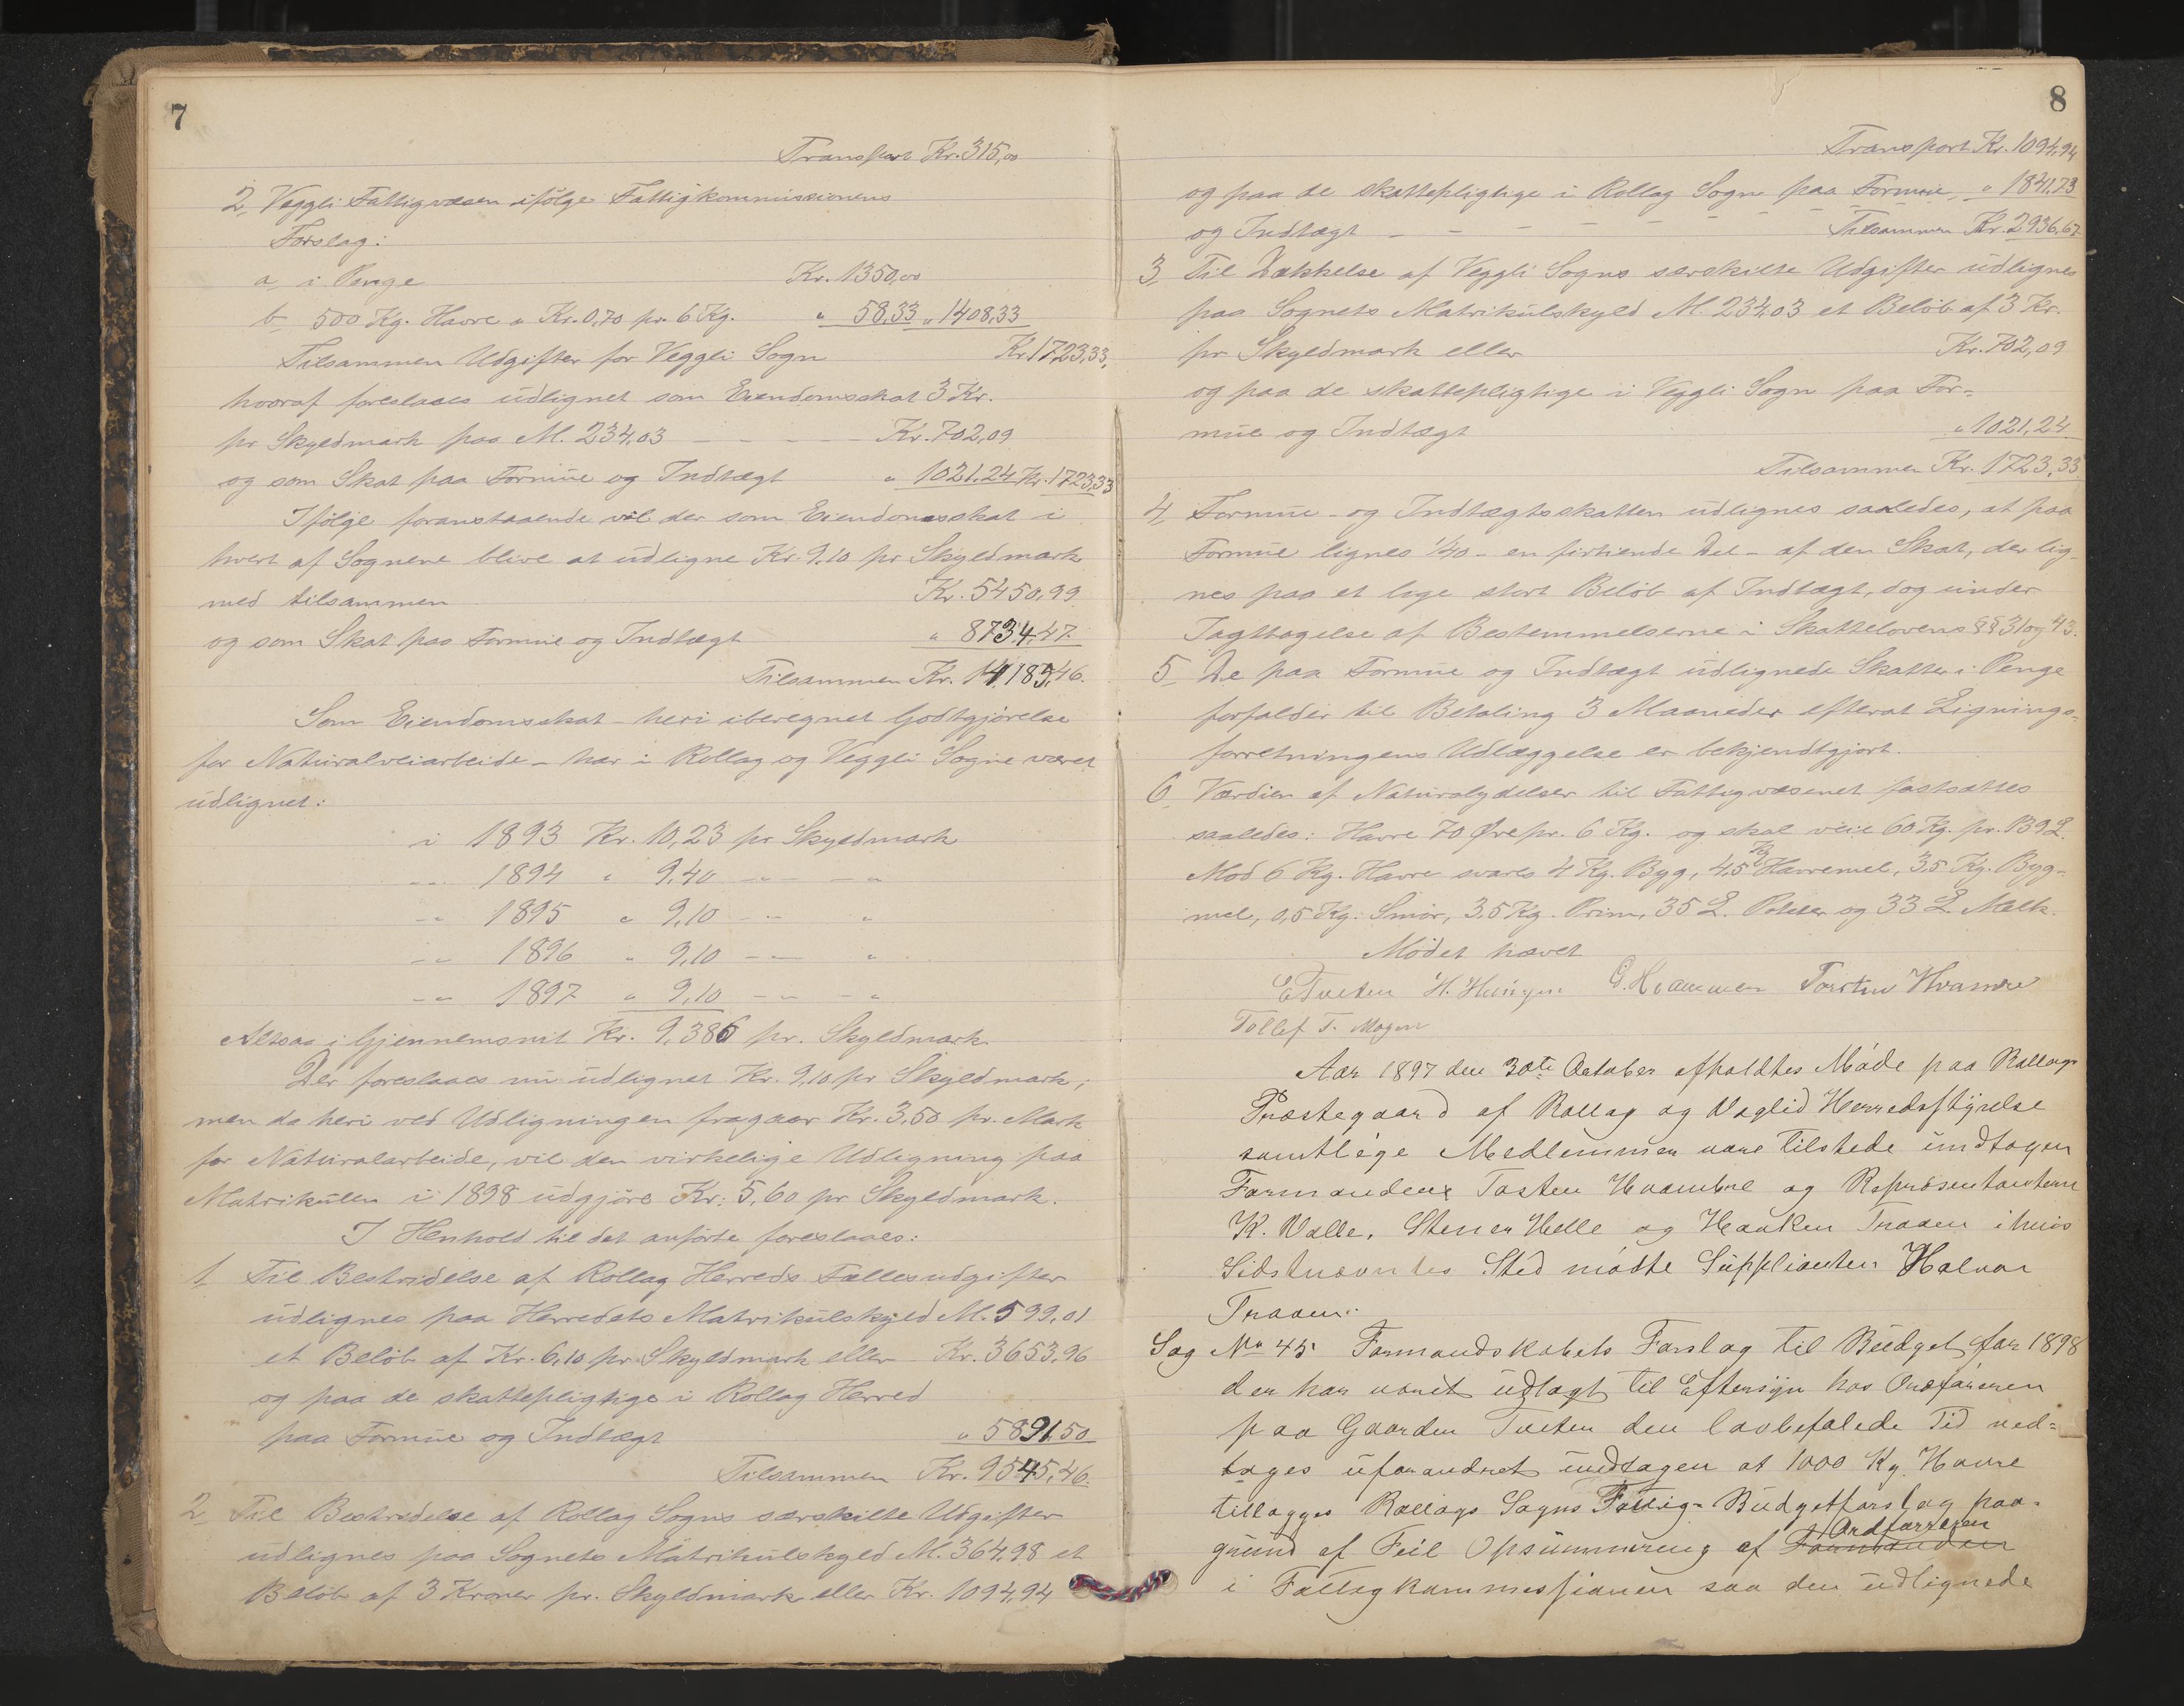 7
Transport Kr. 315,00
2, Veggli Fattigvæsen ifølge Fattigkommissionens
Forslag:
a, i Penge Kr. 1350,00
b, 500 Kg. Havre a Kr. 0,70 pr. 6 Kg. " 58,33 " 1408,33
Tilsammen Udgifter for Veggli Sogn Kr 1723,33,
hvoraf foreslaaes udlignet som Eiendomsskat 3 Kr.
pr Skyldmark paa M. 234,03 – – – – Kr. 702,09
og som Skat paa Formue og Indtægt " 1021.24 Kr. 1723,33
Ifølge foranstaaende vil der som Eiendomsskat i
hvert af Sognene blive at udligne Kr. 9.10 pr Skyldmark
med tilsammen Kr. 5450,99
og som Skat paa Formue og Indtægt " 8734.47.
Tilsammen Kr. 14185,46.
Som Eiendomsskat – heri iberegnet Godtgjørelse
for Naturalveiarbeide – har i Rollag og Veggli Sogne været
udlignet:
i 1893 Kr. 10,23 pr Skyldmark
-"- 1894 " 9.40 -"- -"
-"- 1895 " 9,10 -"- "
-"- 1896 " 9,10 -"- "
-"- 1897 " 9,10 -"- -"
Altsaa i Gjennemsnit Kr. 9,386 pr. Skyldmark.
Der foreslaaes nu udlignet Kr. 9,10 pr Skyldmark,
men da heri ved Udligningen fragaar Kr. 3,50 pr. Mark
for Naturalarbeide, vil den virkelige Udligning paa
Matrikulen i 1898 udgjøre Kr. 5,60 pr Skyldmark.
I Henhold til det anførte foreslaaes:
1, Til Bestridelse af Rollag Herreds Fællesudgifter
udlignes paa Herredets Matrikulskyld M. 599,01
et Beløb af Kr. 6,10 pr. Skyldmark eller Kr. 3653,96
og paa de skattepligtige i Rollag Herred
paa Formue og Indtægt " 5891.50
Tilsammen Kr. 9545,46.
2, Til Bestridelse af Rollag Sogns særskilte Udgifter
udlignes paa Sognets Matrikulskyld M. 364,98 et
Beløb af 3 Kroner pr. Skyldmark eller Kr. 1094,94
8
Transport Kr. 1094,94
og paa de skattepligtige i Rollag Sogn paa Formue, " 1841,73
og Indtægt – – – – Tilsammen Kr. 2936,67
3, Til Dækkelse af Veggli Sogns særskilte Udgifter udlignes
paa Sognets Matrikulskyld M. 234,03 et Beløb af 3 Kr.
pr Skyldmark eller Kr. 702,09
og paa de skattepligtige i Veggli Sogn paa For-
mue og Indtægt " 1021,24
Tilsammen Kr. 1723,33
4, Formue- og Indtægtsskatten udlignes saaledes, at paa
Formue lignes 1/40 – en firtiende Del – af den Skat, der lig-
nes paa et lige stort Beløb af Indtægt, dog under
Iagttagelse af Bestemmelserne i Skattelovens §§ 31 og 43.
5, De paa Formue og Indtægt udlignede Skatter i Penge
forfalder til Betaling 3 Maaneder efterat Lignings-
forretningens Udlæggelse er bekjendtgjort.
6, Værdien af Naturalydelser til Fattigvæsenet fastsættes
saaledes: Havre 70 Øre pr. 6 Kg. og skal veie 60 Kg. pr. 139 L.
Mod 6 Kg. Havre svares 4 Kg. Byg, 4,5 Kg Havremel, 3,5 Kg. Byg-
mel, 0,5 Kg. Smør, 3,5 Kg. Prim, 35 L. Poteter og 33 L Melk.
Mødet hævet
E Tveten H. G. Hvammen Torsten Hvambre
Tollef T. Mogen
Aar 1897 den 30te October afholdtes Møde paa Rollags
Præstegaard af Rollag og Veglid Herredsstyrelse
samtlige Medlemmer vare tilstede undtagen
Formandene Tosten Hvambre og Repræsentantern
K. Valle, Stener Helle og Haaken Traaen i hvis
Sidstnævntes Sted mødte Suppleanten Halvor
Traaen.
Sag No 45 Formandskabets Forslag til Budget for 1898
der har været udlagt til Eftersyn hos Ordføreren
paa Gaarden Tveten den lovbefalede Tid ved-
tages uforandret undtagen at 1000 Kg. Havre
tillægges Rollags Sogns Fattig-Budgetforslag paa-
grund af Feil Opsummering af Formanden Ordføreren
i Fattigkommissionen saa den udlignede